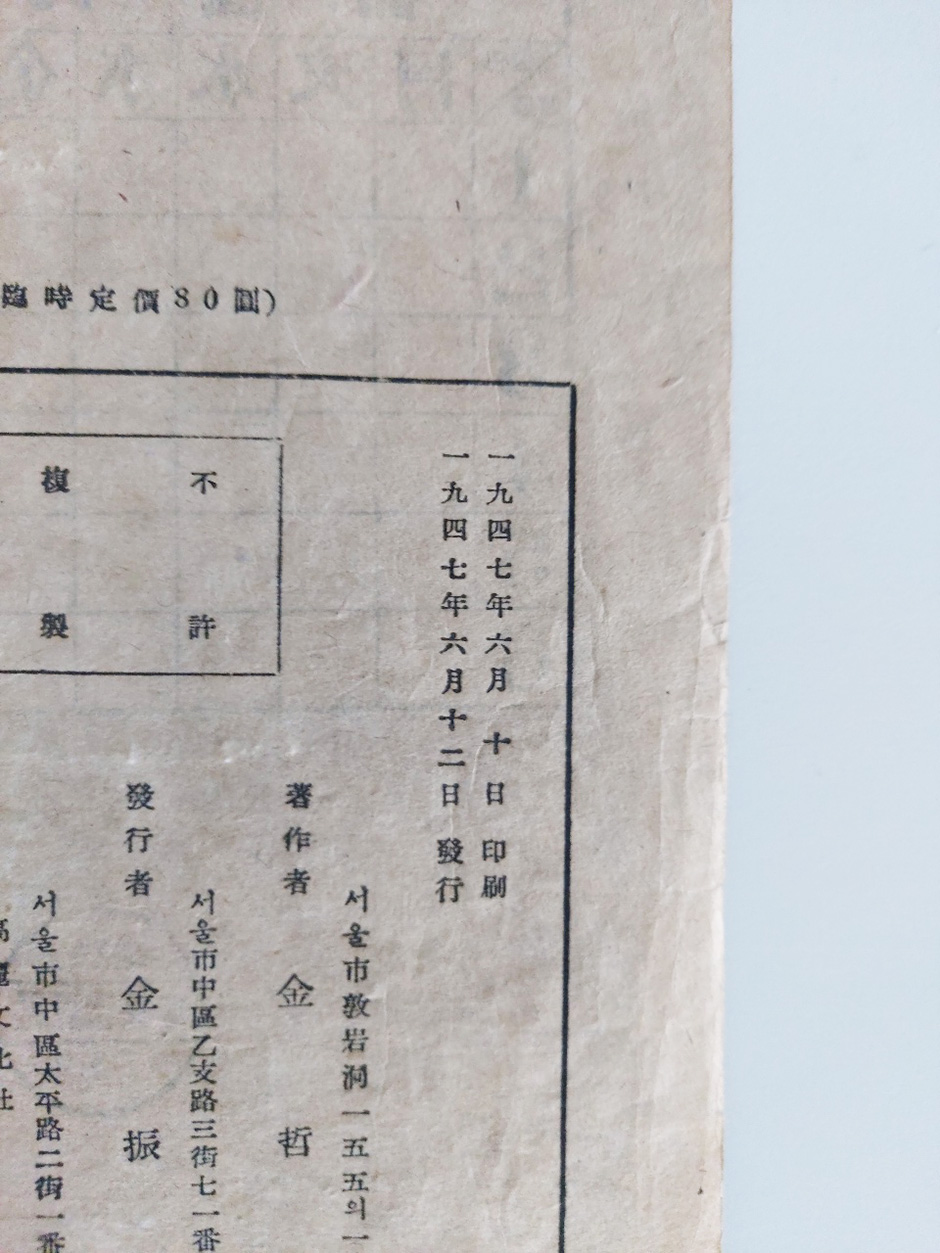 臨時定價80圓)
一九四七年六月 十日 印刷
一九四七年六月十二日 發行
不許
複製
서울市敦岩洞一五五의一
著作者 金哲
서울市中區乙支路三街七一番
發行者 金振
서울市中區太平路二街一番
麗文化社